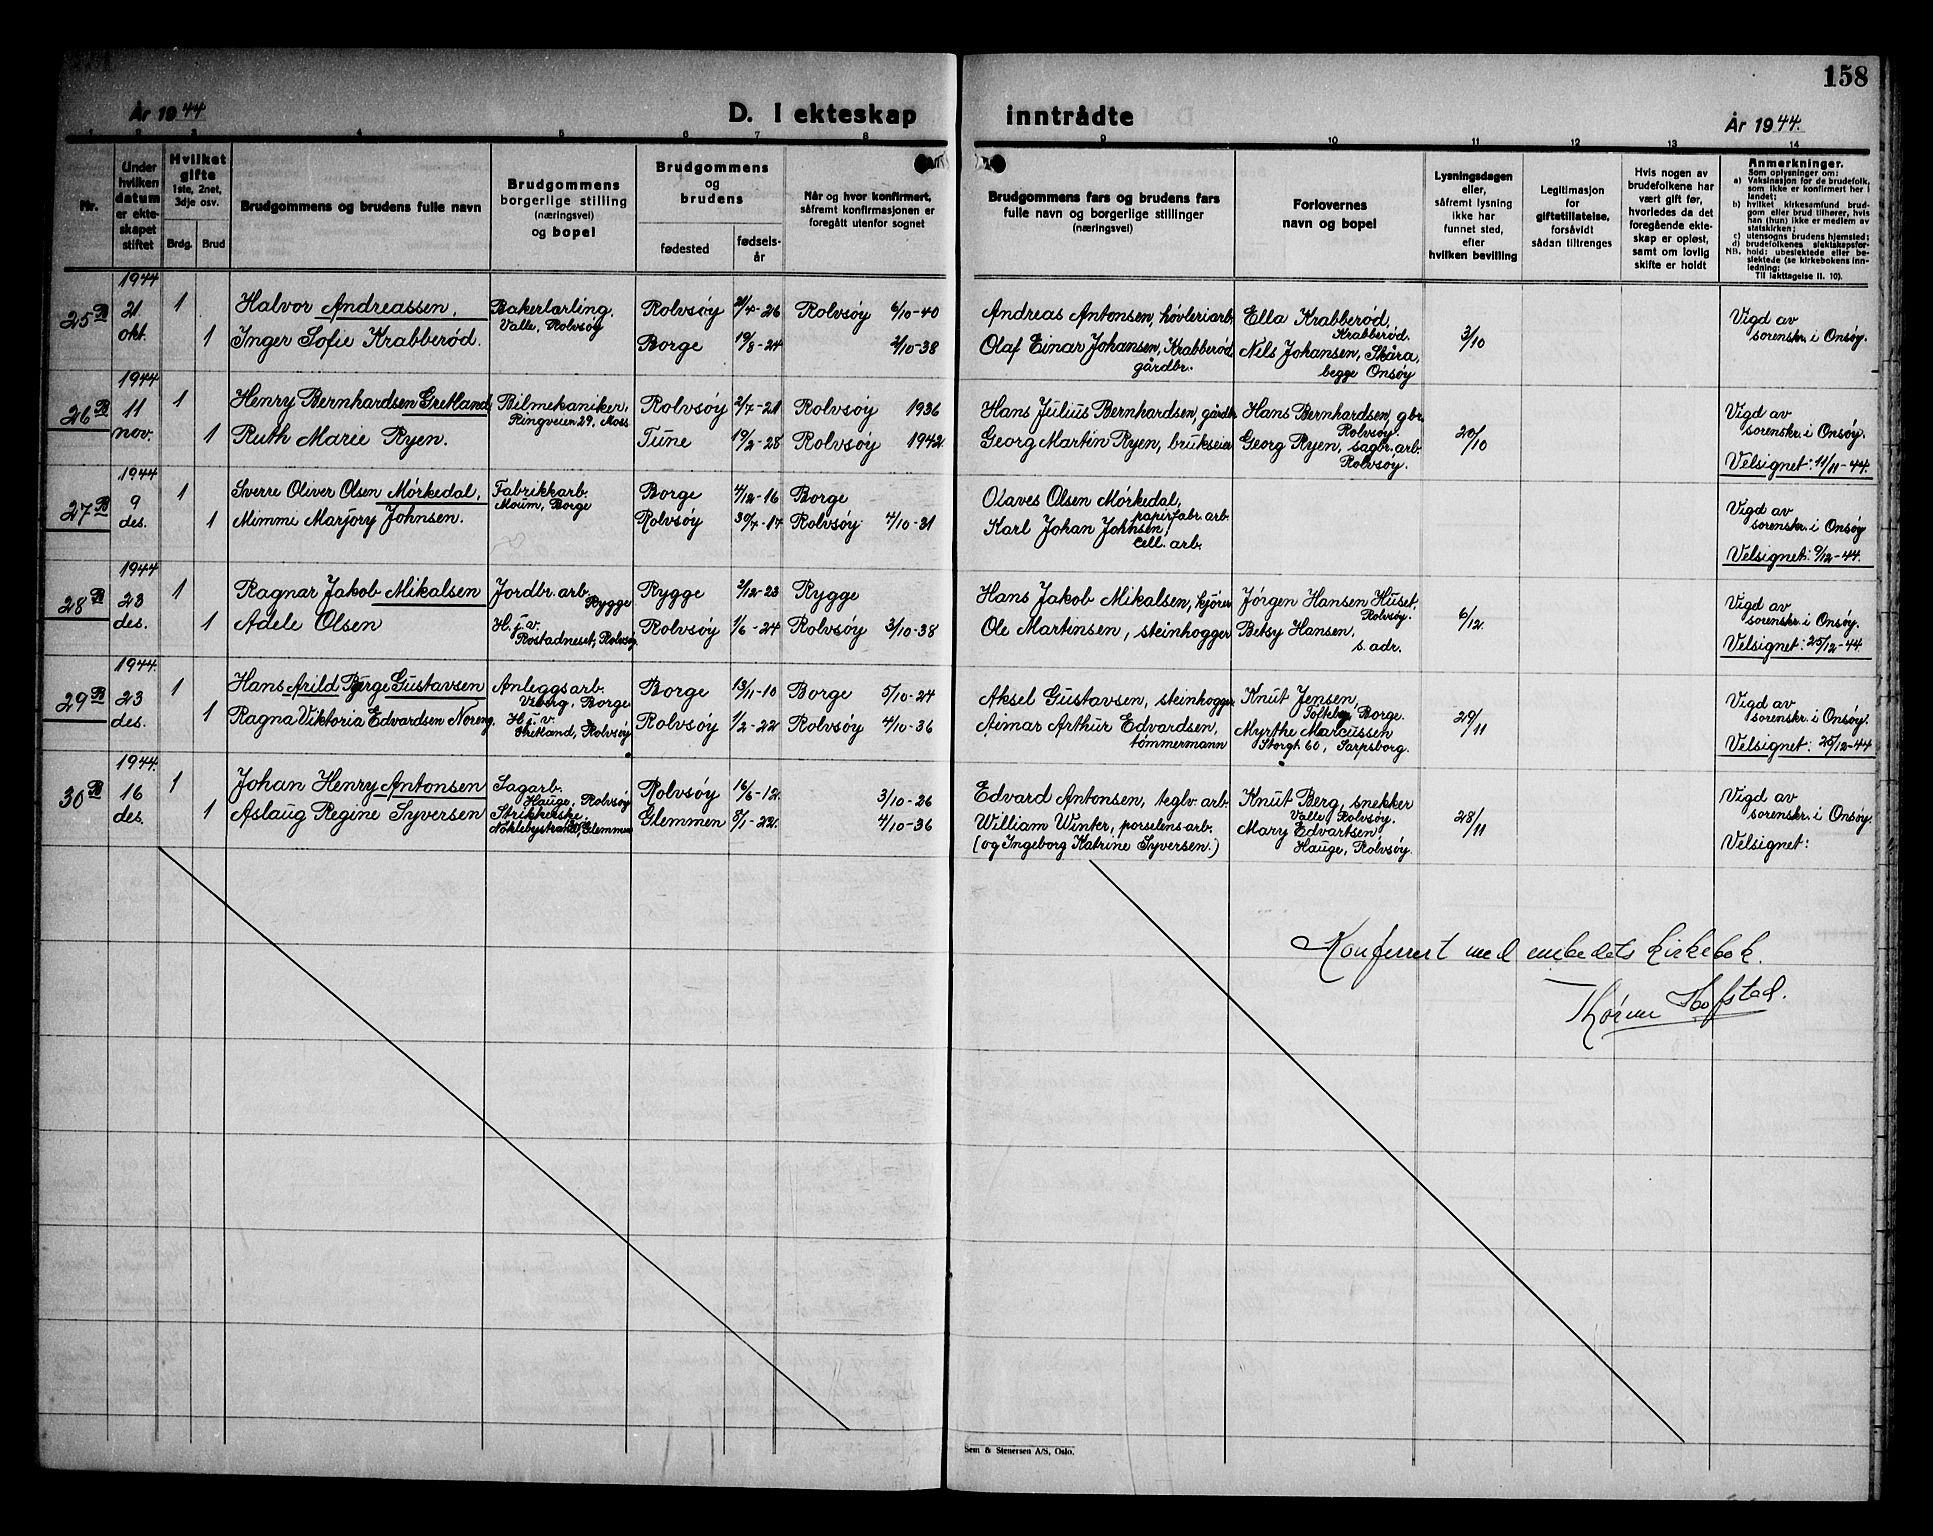 158
År 1944
D. I ekteskap
inntrådte
År 1944.
1 2 3 4 5 6 7 8 9 10 11 12 13 14
Nr.
Under hvilken datum er ekteskapet stiftet
Hvilket gifte 1ste, 2net, 3dje osv.
Brdg. Brud
Brudgommens og brudens fulle navn
Brudgommens borgerlige stilling (næringsvei) og bopel
Brudgommens og brudens
fødested
fødselsår
Når og hvor konfirmert, såfremt konfirmasjonen er foregått utenfor sognet
Brudgommens fars og brudens fars fulle navn og borgerlige stillinger (næringsvei)
Forlovernes navn og bopel
Lysningsdagen eller, såfremt lysning ikke har funnet sted, efter hvilken bevilling
Legitimasjon for giftetillatelse, forsåvidt sådan tiltrenges
Hvis nogen av brudefolkene har vært gift før, hvorledes da det foregående ekteskap er opløst, samt om lovlig skifte er holdt
Anmerkninger.
Som oplysninger om:
a) Vaksinasjon for de brudefolk, som ikke er konfirmert her i landet;
b) hvilket kirkesamfund brudgom eller brud tilhører, hvis han (hun) ikke er medlem av statskirken;
c) utensogns brudens hjemsted;
d) brudefolkenes slektskapsforhold: ubeslektede eller beslektede (se kirkebokens innledning;
NB.
Til iakttagelse II. 10).
25 B 1944 21 okt. 1 Halvor Andreassen, Bakerlærling, Valle, Rolvsøy Rolvsøy 21/4-26 Rolvsøy 6/10-40 Andreas Antonsen, høvleriarb. Ella Krabberød, Krabberød. 3/10 Vigd av sorenskr. i Onsøy.
1 Inger Sofie Krabberød. Borge 19/8-24 2/10-38 Olaf Einar Johansen, Krabberød gårdbr. Nils Johansen, Skåra, begge Onsøy
26 B 1944 11 nov. 1 Henry Bernhardsen Gretland Bilmekaniker, Ringveien 29, Moss Rolvsøy 2/7-21 Rolvsøy 1936 Hans Julius Bernhardsen, gårdbr. Hans Bernhardsen, gbr. Rolvsøy. 20/10 Vigd av sorenskr. i Onsøy.
1 Ruth Marie Ryen. Tune 19/2-28 Rolvsøy 1942 Georg Martin Ryen, brukseier Georg Ryen, sagbr. arb. Rolvsøy. Velsignet: 11/11-44.
27 B 1944 9 des. 1 Sverre Oliver Olsen Mörkedal, Fabrikkarb. Moum, Borge Borge 4/12-16 Borge Olaves Olsen Mörkedal, papirfabr. arb. Vigd av sorenskr. i Onsøy
1 Mimmi Marjory Johnsen. Rolvsøy 30/4-14 Rolvsøy 4/10-31 Karl Johan Johnsen, cell. arb. Velsignet: 9/12-44.
28 B 1944 23 des. 1 Ragnar Jakob Mikalsen Jordbr. arb. Rygge Rygge 2/12-23 Rygge Hans Jakob Mikalsen, kjörer Jörgen Hansen Huset, Rolvsøy. 6/12. Vigd av sorenskr. i Onsøy.
1 Adele Olsen H. j. v. Rostadneset, Rolvsøy Rolvsøy 1/6-24 Rolvsøy 3/10-38 Ole Martinsen, steinhogger Betsy Hansen, s. adr. Velsignet: 25/12-44.
29 B 1944. 23 des. 1 Hans Arild Børge Gustavsen Anleggsarb. Viberg, Borge Borge 13/11-10 Borge 5/10-24 Aksel Gustavsen, steinhogger Knut Jensen, Tofteberg, Borge. 29/11 Vigd av sorenskr. i Onsøy.
1 Ragna Viktoria Edvardsen Noreng, H. j. v. Gretland, Rolvsøy Rolvsøy 1/2-22 Rolvsøy 4/10-36 Aimar Arthur Edvardsen, tömmermann Myrthe Marcussen Storgt. 60, Sarpsborg. Velsignet: 26/12-44
30 B 1944. 16 des. 1 Johan Henry Antonsen Sagarb. Hauge, Rolvsøy Rolvsøy 16/6-12. 3/10-26 Edvard Antonsen, teglv. arb. Knut Berg, snekker Valle, Rolvsøy. 28/11 Vigd av sorenskr. i Onsøy.
1 Aslaug Regine Syversen Strikkerske, Nöklebystrand, Glemmen Glemmen 8/1-22. 4/10-36 William Winter, porselens arb. (og Ingeborg Katrine Syversen.) Mary Edvartsen Hauge, Rolvsøy. Velsignet:
Konferert med embedets kirkebok.
Hofstad.
Sem & Stenersen A/S, Oslo.